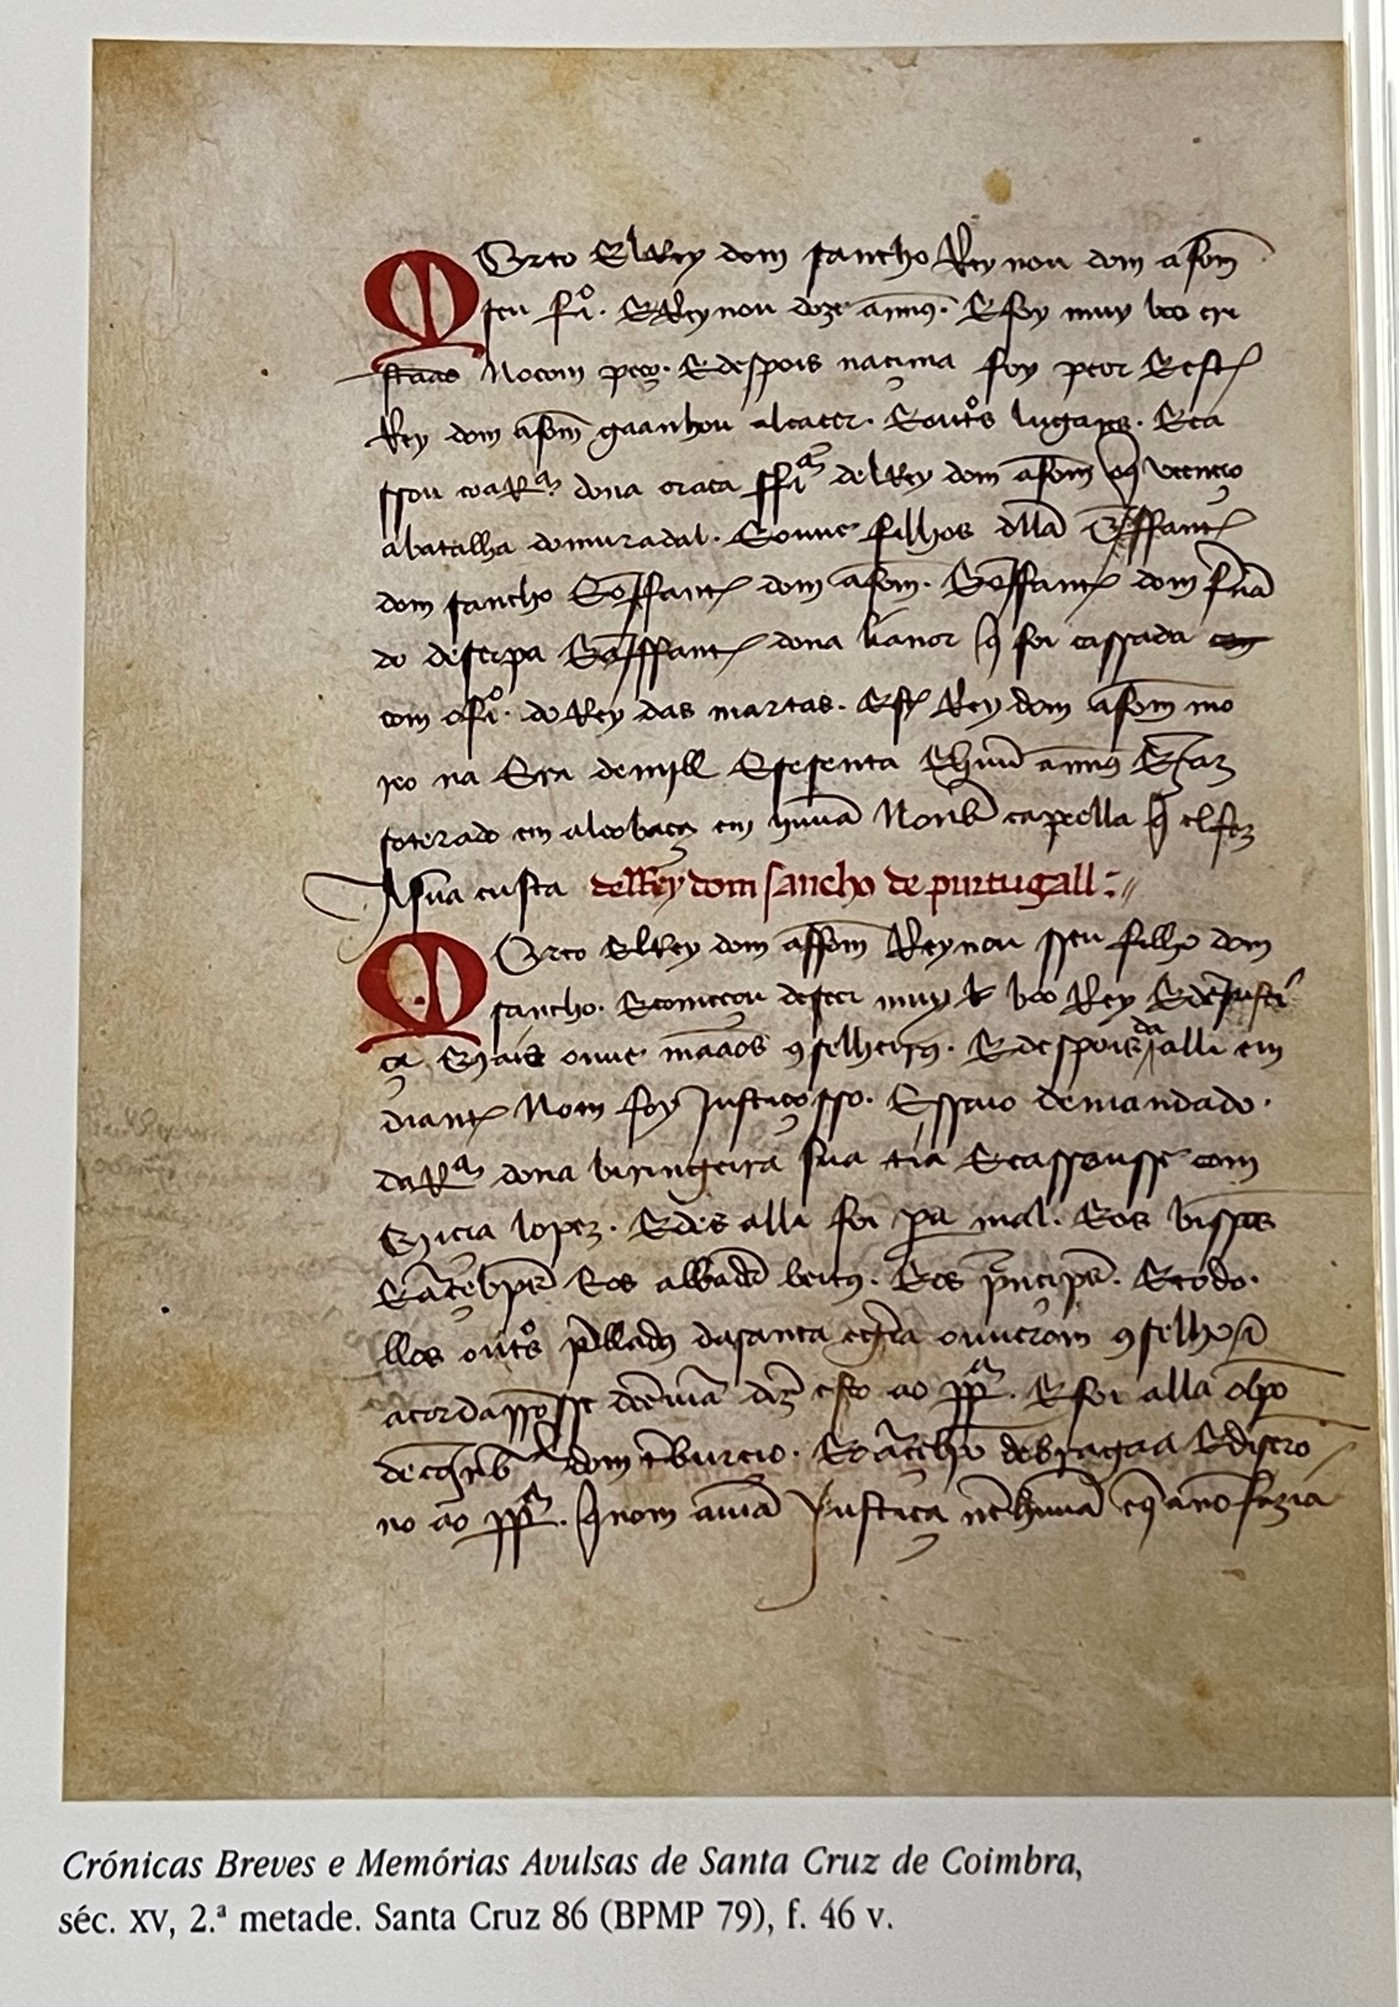 Morto ElRey dom sancho Reynou dom afom
seu fio. E Reynou doze annus. E foy muy boo cri
staao Nocom peço. E despois naçima foy peor E est
Rey dom afom gaanhou alcacer. E outos lugares. E ca
ssou coa Ra dona oraca ffia delRey dom afom q venceo
abatalha domuradal. E ouue filhos dlla Iffant
dom sancho E o Iffant dom afom. E o Iffant dom fnã
do deserpa E a Iffant dona lianor q foi cassada
com ofio. do Rey das marcas. Est Rey dom afom mo
reo na Era demjll E sesenta annus E Jaz
soterado em alcobaça em huuã Nonb capella q el fez
A sua custa delRey dom sancho de purtugall :
Morto ElRey dom affom Reynou sseu filho dom
sancho. E começou deseer muy boo Rey E de Justi
ça Mais ouue maaos 9selheirs. E despois da alli em
diant Nom foy Justiçosso. E ssaio demandado.
da Ra dona biringeira sua tia E cassousse com
Micia lopez. E des alli foi pa mal. E os bispos
E arcebpos E os abbad bentos. E os principes. E todo.
llos outos pllados dasanta egria ouuerom 9selho
acordarõsse deeuiã diz esto ao ppa. E foi alla obpo
de coinb dom tiburcio. E o arcebpo debragaa E disero
no ao ppa. q nom auiã Justiça nehuuã eq a nõ fazia
Crónicas Breves e Memórias Avulsas de Santa Cruz de Coimbra,
séc. XV, 2.ª metade. Santa Cruz 86 (BPMP 79), f. 46 v.